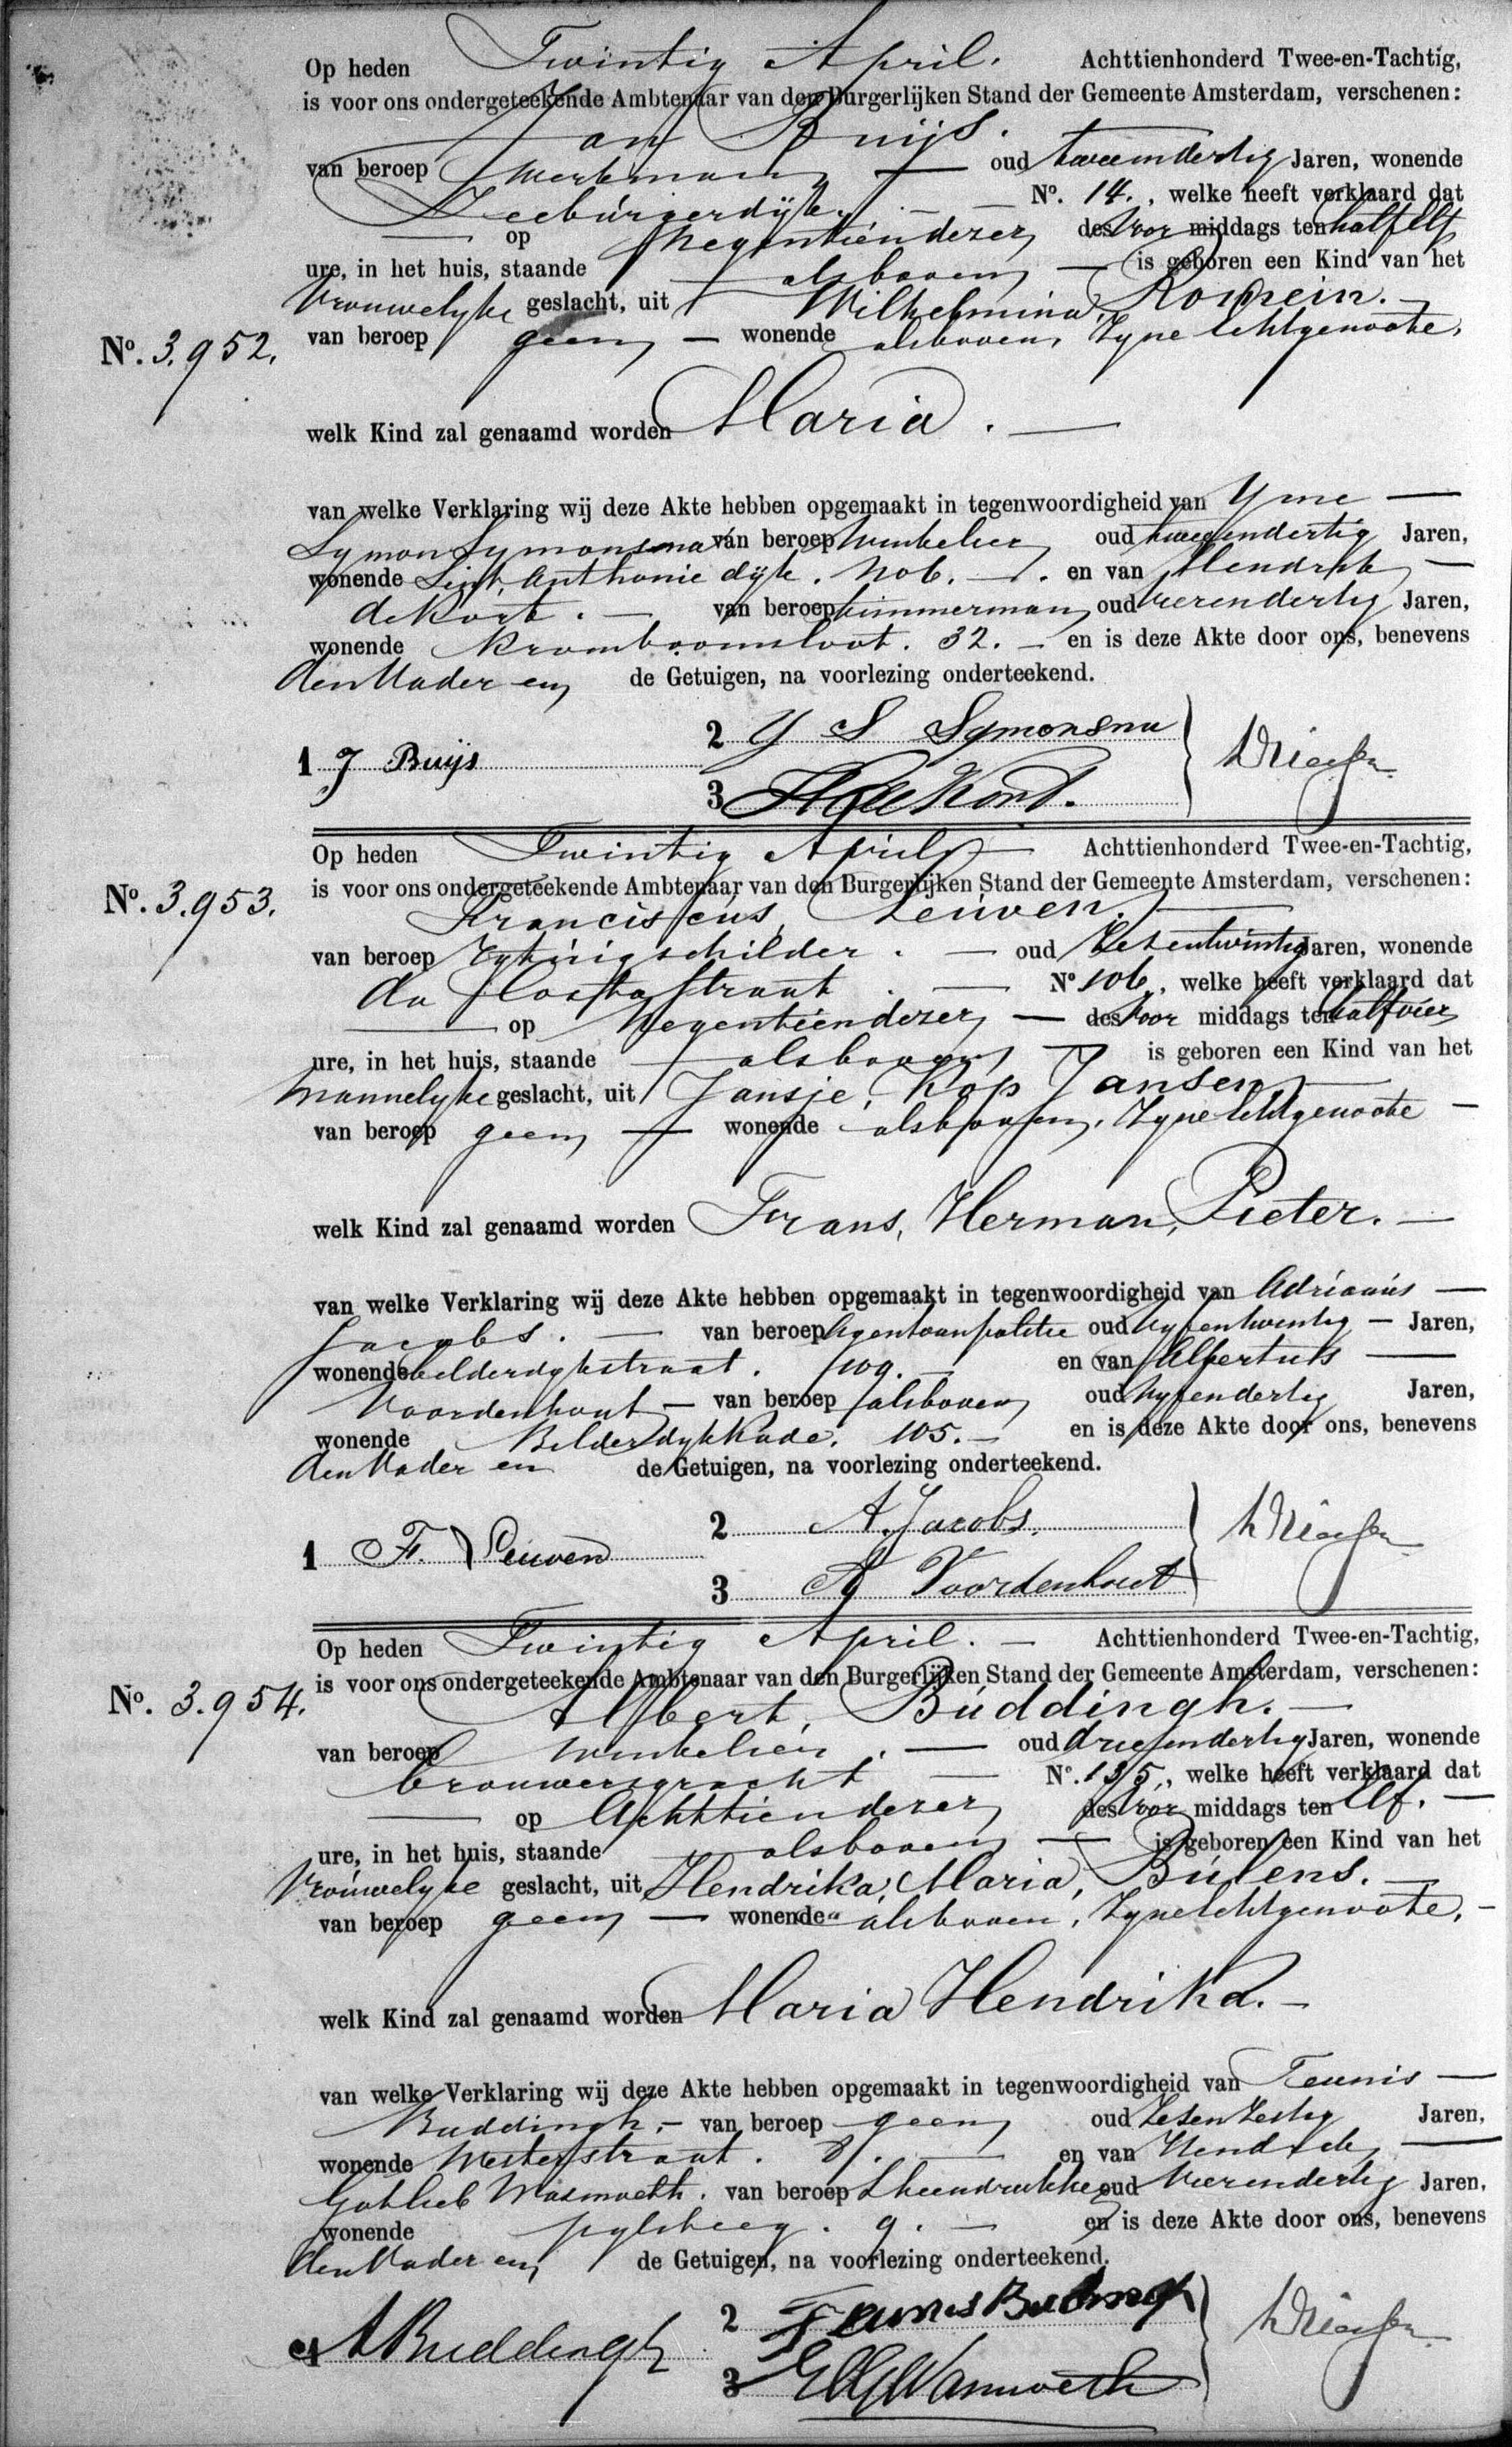 Op heden Twintig April. Achttienhonderd Twee-en-Tachtig,
is voor ons ondergeteekende Ambtenaar van den Burgerlijken Stand der Gemeente Amsterdam, verschenen:
Jan Buijs.
van beroep Werkman — oud tweeendertig Jaren, wonende
Zeeburgerdijk. — No. 14., welke heeft verklaard dat
— op Negentiendezer, des Voor middags ten half Elf
ure, in het huis, staande alsboven — is geboren een Kind van het
Vrouwelyke geslacht, uit Wilhelmina, Romein. —
No. 3.952. van beroep geen, — wonende alsboven, Zyne Echtgenoote.
welk Kind zal genaamd worden Maria. —
van welke Verklaring wij deze Akte hebben opgemaakt in tegenwoordigheid van Yme —
Symon Symonsma van beroep Winkelier oud tweeendertig Jaren,
wonende Sint Anthonie dijk. No 6. — en van Hendrik —
de Kort. — van beroep timmerman, oud vierendertig Jaren,
wonende Kromboomsloot. 32. — en is deze Akte door ons, benevens
den Vader en, de Getuigen, na voorlezing onderteekend.
2 Y S Symonsma
1 J Buijs
3 H de Kort.
Op heden Twintig April — Achttienhonderd Twee-en-Tachtig,
No. 3.953. is voor ons ondergeteekende Ambtenaar van den Burgerlijken Stand der Gemeente Amsterdam, verschenen:
Franciscus, Leuven. —
van beroep Rytuigschilder. — oud Zesentwintig Jaren, wonende
da Costastraat. — No 106., welke heeft verklaard dat
— op Negentiendezer, — des Voor middags ten halfvier
ure, in het huis, staande alsboven, — is geboren een Kind van het
Mannelyke geslacht, uit Jansje, Kop Jansen —
van beroep geen, — wonende alsboven, Zyne Echtgenoote —
welk Kind zal genaamd worden Frans, Herman, Pieter. —
van welke Verklaring wij deze Akte hebben opgemaakt in tegenwoordigheid van Adrianus —
Jacobs. — van beroep Agentvanpolitie oud vyfentwintig — Jaren,
wonende bilderdykstraat. 109. — en van Albertus —
Voordenhout — van beroep alsboven, oud vyfendertig Jaren,
wonende Bilderdykkade. 105. — en is deze Akte door ons, benevens
den Vader en de Getuigen, na voorlezing onderteekend.
2 A. Jacobs.
1 F. Leuven
3 A Voordenhout
Op heden Twintig April. — Achttienhonderd Twee-en-Tachtig,
No. 3.954. is voor ons ondergeteekende Ambtenaar van den Burgerlijken Stand der Gemeente Amsterdam, verschenen:
Albert, Buddingh. —
van beroep Winkelier. — oud drieendertig Jaren, wonende
brouwersgracht — No. 135., welke heeft verklaard dat
— op Achttiendezer, des Voor middags ten Elf. —
ure, in het huis, staande alsboven, — is geboren een Kind van het
Vrouwelyke geslacht, uit Hendrika, Maria, Bulens. —
van beroep geen, — wonende alsboven, Zyne Echtgenoote. —
welk Kind zal genaamd worden Maria Hendrika. —
van welke Verklaring wij deze Akte hebben opgemaakt in tegenwoordigheid van Teunis —
Buddingh, — van beroep geen, oud Zesenzestig Jaren,
wonende Westerstraat. 8. — en van Hendrik, —
Gotlieb Wasmoeth. van beroep Steendrukker oud Vierendertig Jaren,
wonende pylsteeg. 9. — en is deze Akte door ons, benevens
den Vader en, de Getuigen, na voorlezing onderteekend.
2 Teunis Budingh
1 A Buddingh
3 Wasmoeth